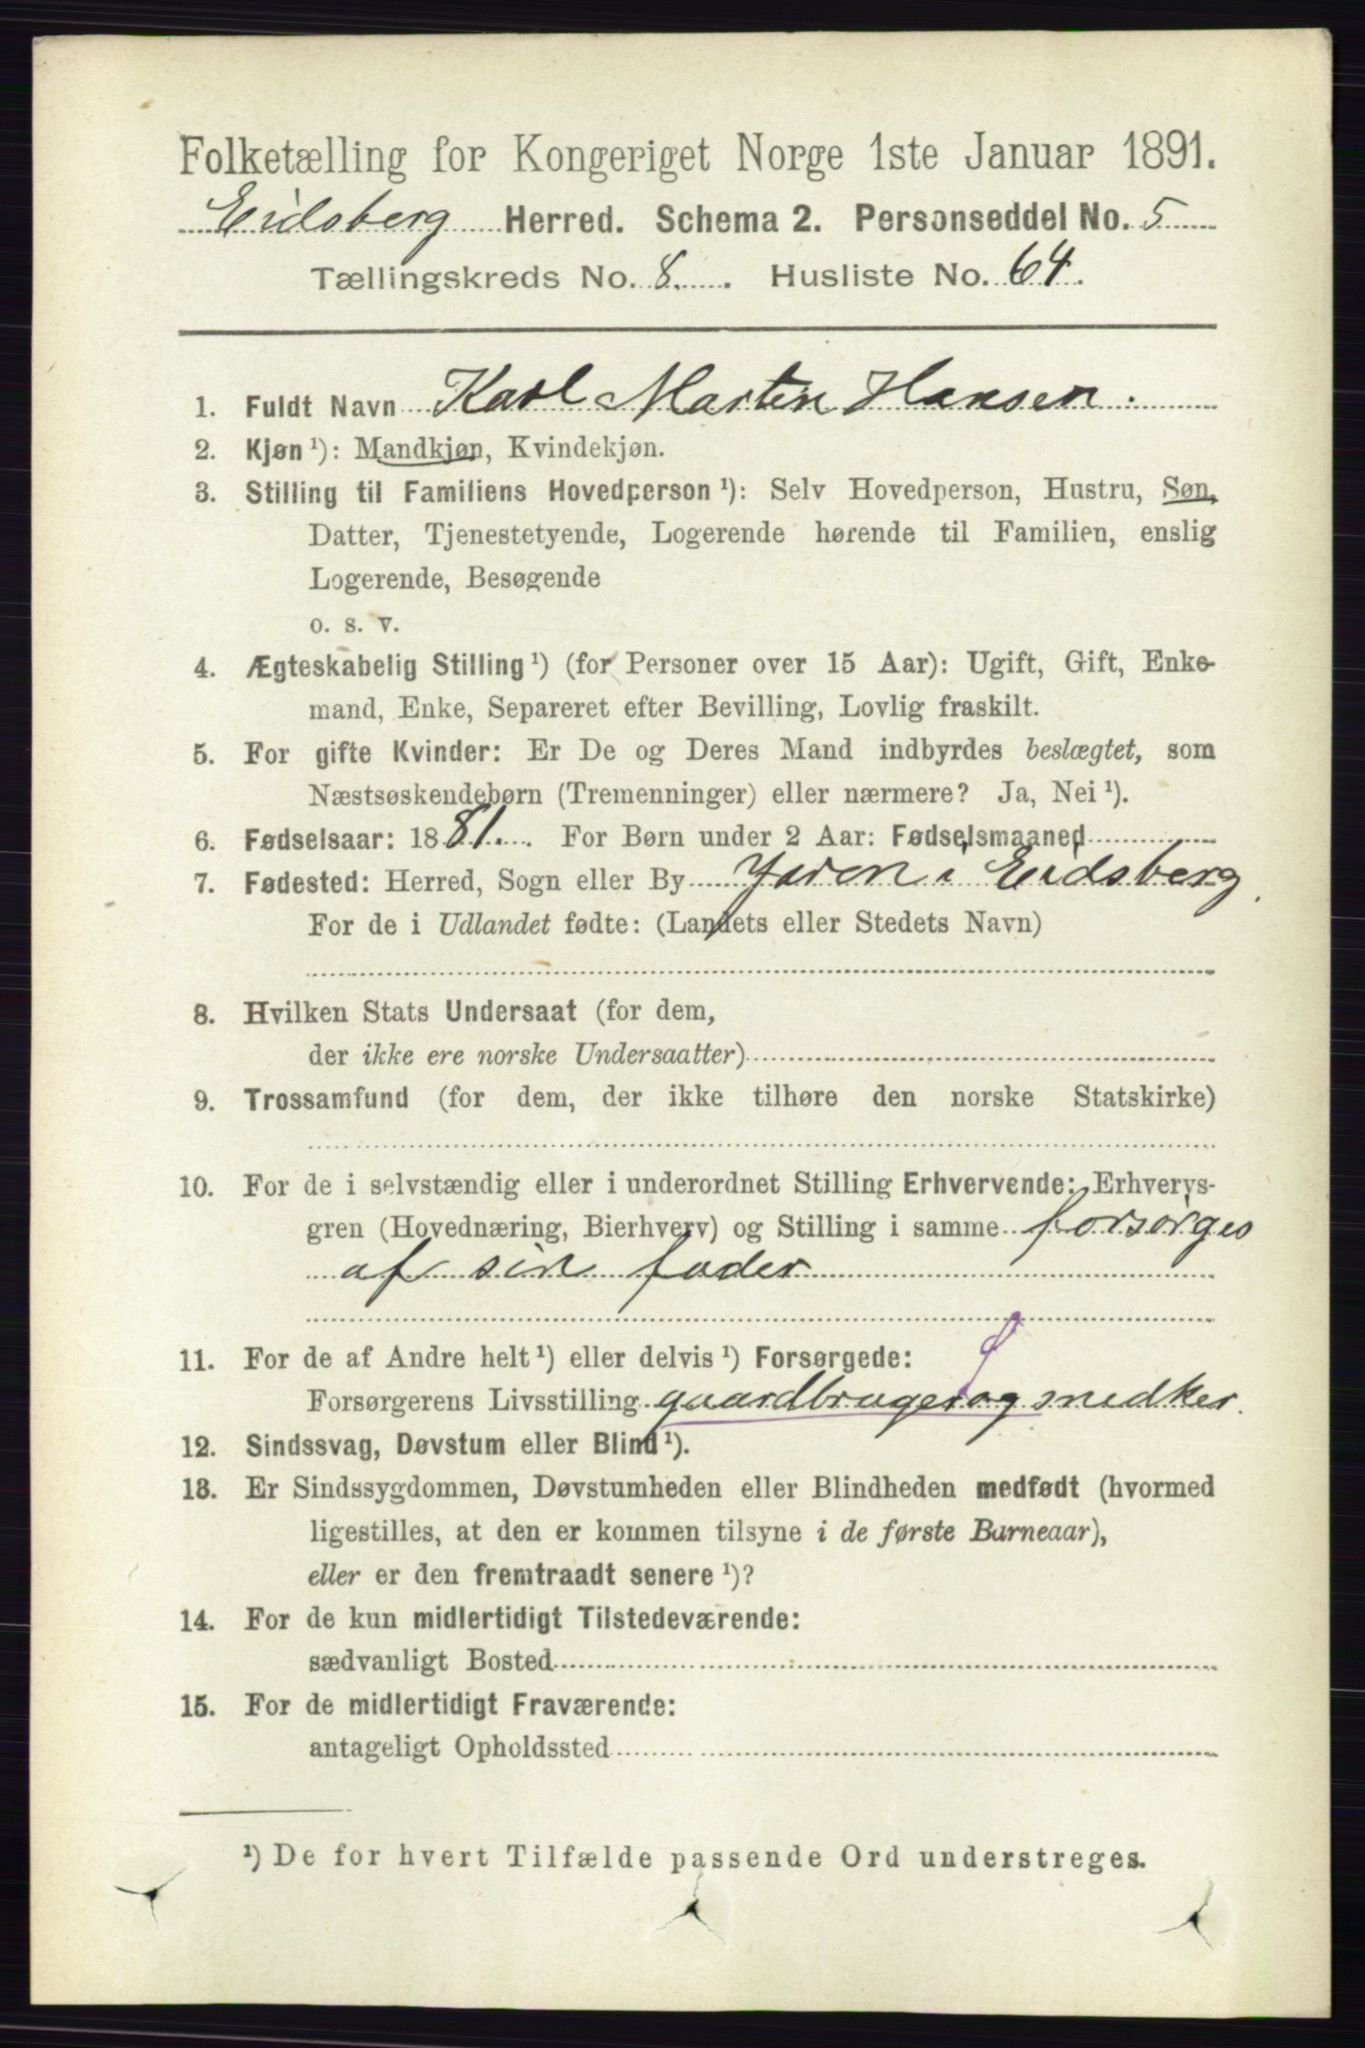 Folketælling for Kongeriget Norge 1ste Januar 1891.
Eidsberg Herred. Schema 2. Personseddel No. 5
Tællingskreds No. 8. Husliste No. 64.
1. Fuldt Navn Karl Martin Hansen.
2. Kjøn ¹): Mandkjøn, Kvindekjøn.
3. Stilling til Familiens Hovedperson ¹): Selv Hovedperson, Hustru, Søn,
Datter, Tjenestetyende, Logerende hørende til Familien, enslig
Logerende, Besøgende
o. s. v.
4. Ægteskabelig Stilling ¹) (for Personer over 15 Aar): Ugift, Gift, Enke-
mand, Enke, Separeret efter Bevilling, Lovlig fraskilt.
5. For gifte Kvinder: Er De og Deres Mand indbyrdes beslægtet, som
Næstsøskendebørn (Tremenninger) eller nærmere? Ja, Nei ¹).
6. Fødselsaar: 1881. For Børn under 2 Aar: Fødselsmaaned
7. Fødested: Herred, Sogn eller By i Eidsberg.
For de i Udlandet fødte: (Landets eller Stedets Navn)
8. Hvilken Stats Undersaat (for dem,
der ikke ere norske Undersaatter)
9. Trossamfund (for dem, der ikke tilhøre den norske Statskirke)
10. For de i selvstændig eller i underordnet Stilling Erhvervende: Erhvervs-
gren (Hovednæring, Bierhverv) og Stilling i samme forsørges
af sin fader
11. For de af Andre helt ¹) eller delvis ¹) Forsørgede:
Forsørgerens Livsstilling gaardbruger og snedker.
12. Sindssvag, Døvstum eller Blind ¹).
13. Er Sindssygdommen, Døvstumheden eller Blindheden medfødt (hvormed
ligestilles, at den er kommen tilsyne i de første Barneaar),
eller er den fremtraadt senere ¹)?
14. For de kun midlertidigt Tilstedeværende:
sædvanligt Bosted
15. For de midlertidigt Fraværende:
antageligt Opholdssted
¹) De for hvert Tilfælde passende Ord understreges.